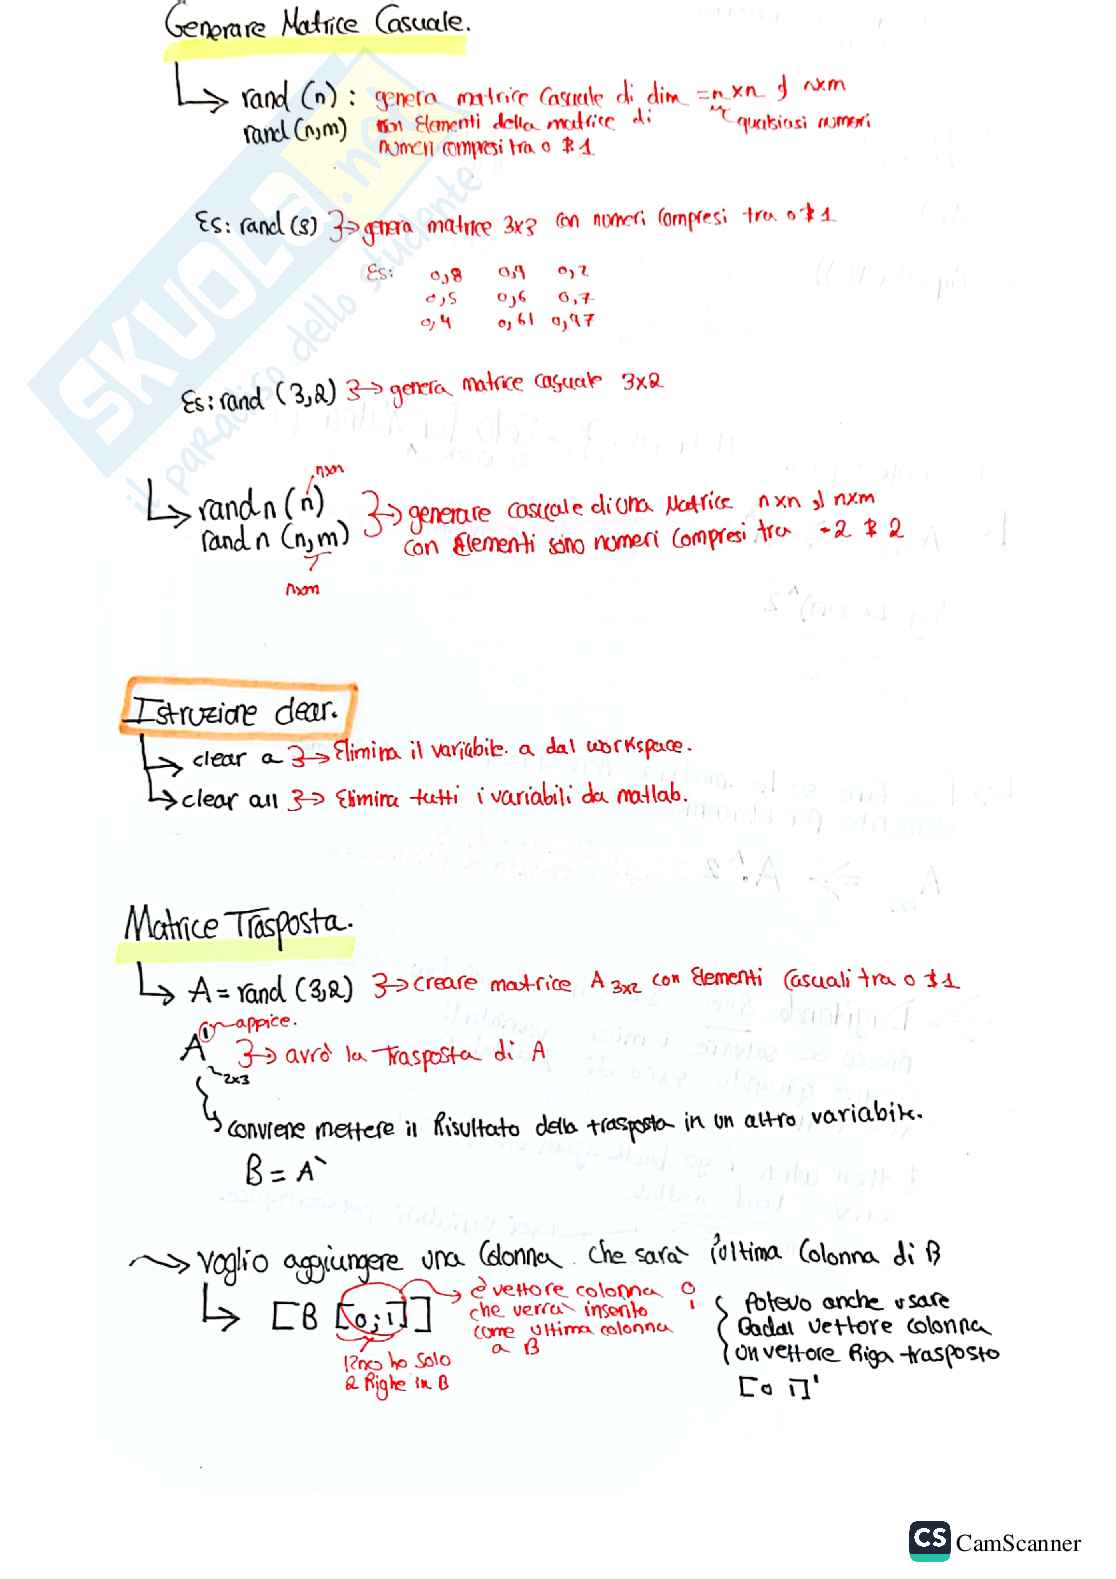 Generare Matrice Casuale.
rand (n) : genera matrice Casuale di dim = nxn o nxm
rand (n,m) con Elementi della matrice di qualsiasi numeri
numeri compresi tra 0 e 1
Es: rand (3) → genera matrice 3x3 con numeri compresi tra 0 e 1
Es: 0,8 0,9 0,2
0,5 0,6 0,7
0,4 0,61 0,97
Es: rand (3,2) → genera matrice casuale 3x2
nxm
rand n (n) → generare casuale di una Matrice nxn o nxm
rand n (n,m) con Elementi sono numeri compresi tra -2 e 2
nxm
Istruzione clear.
clear a → Elimina il variabile a dal workspace.
clear all → Elimina tutti i variabili da matlab.
Matrice Trasposta.
A = rand (3,2) → creare matrice A 3x2 con Elementi Casuali tra 0 e 1
appice.
A' → avrò la Trasposta di A
2x3
conviene mettere il Risultato della trasposta in un altro variabile.
B = A`
voglio aggiungere una Colonna che sarà l'ultima Colonna di B
[B [0;1]]
è vettore colonna 0 1
che verrà inserito
come ultima colonna
a B
ho solo
2 Righe in B
Potevo anche usare
vettore colonna
un vettore Riga trasposto
[0 1]'
SKUOLA.net
il paradiso dello studente
CS CamScanner